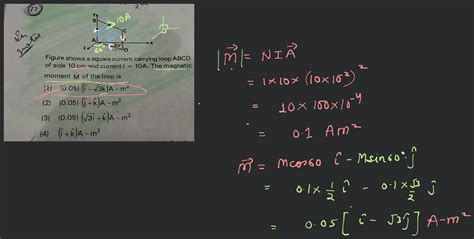 Y
B
10A
C
A
60°
D
X
Figure shows a square current carrying loop ABCD
of side 10 cm and current i = 10A. The magnetic
moment M of the loop is
(1) (0.05) (î - √3k̂)A - m²
(2) (0.05) (ĵ + k̂)A - m²
(3) (0.05) (√3î + k̂)A - m²
(4) (î + k̂)A - m²
|M⃗| = NIA⃗
= 1×10×(10×10⁻²)²
= 10×100×10⁻⁴
= 0.1 Am²
M⃗ = Mcos60 î - Msin60° ĵ
= 0.1×1/2 î - 0.1×√3/2 ĵ
= 0.05[î - √3ĵ] A-m²